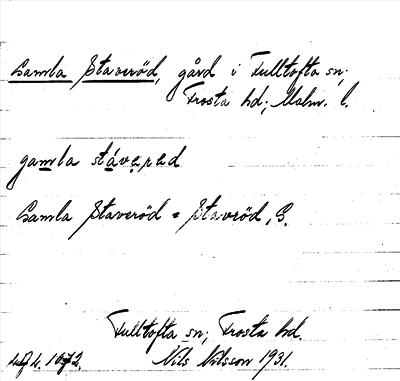 Gamla Staveröd, gård i Fulltofta sn;
Frosta hd; Malm. l.
gamla stáveṛed
Gamla Staveröd = Stavröd, G.
Fulltofta sn; Frosta hd.
Nils Nilsson 1931.